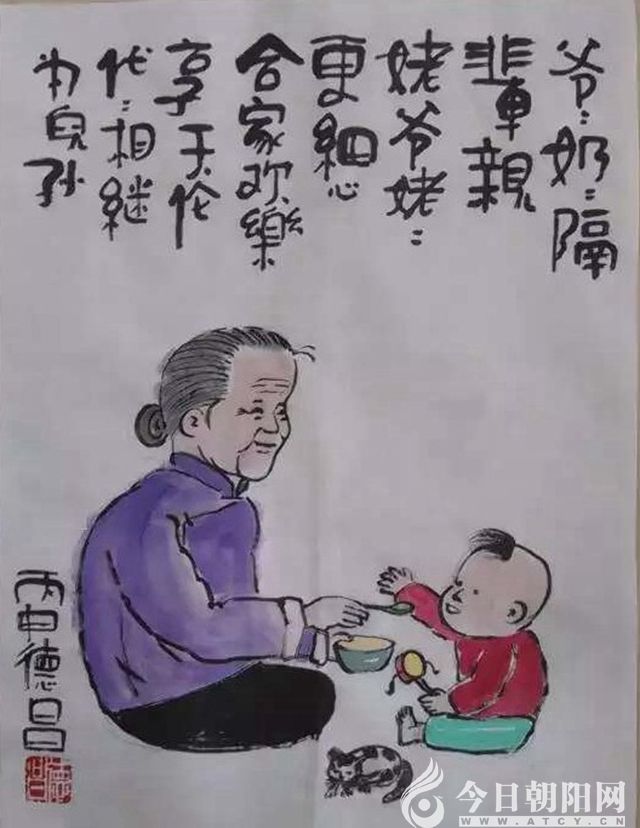 爷〻奶〻隔
輩親
姥爷姥〻
更細心
合家欢樂
享天伦
代〻相继
为兒孙
丙申德昌
今日朝阳网
WWW.ATCY.CN